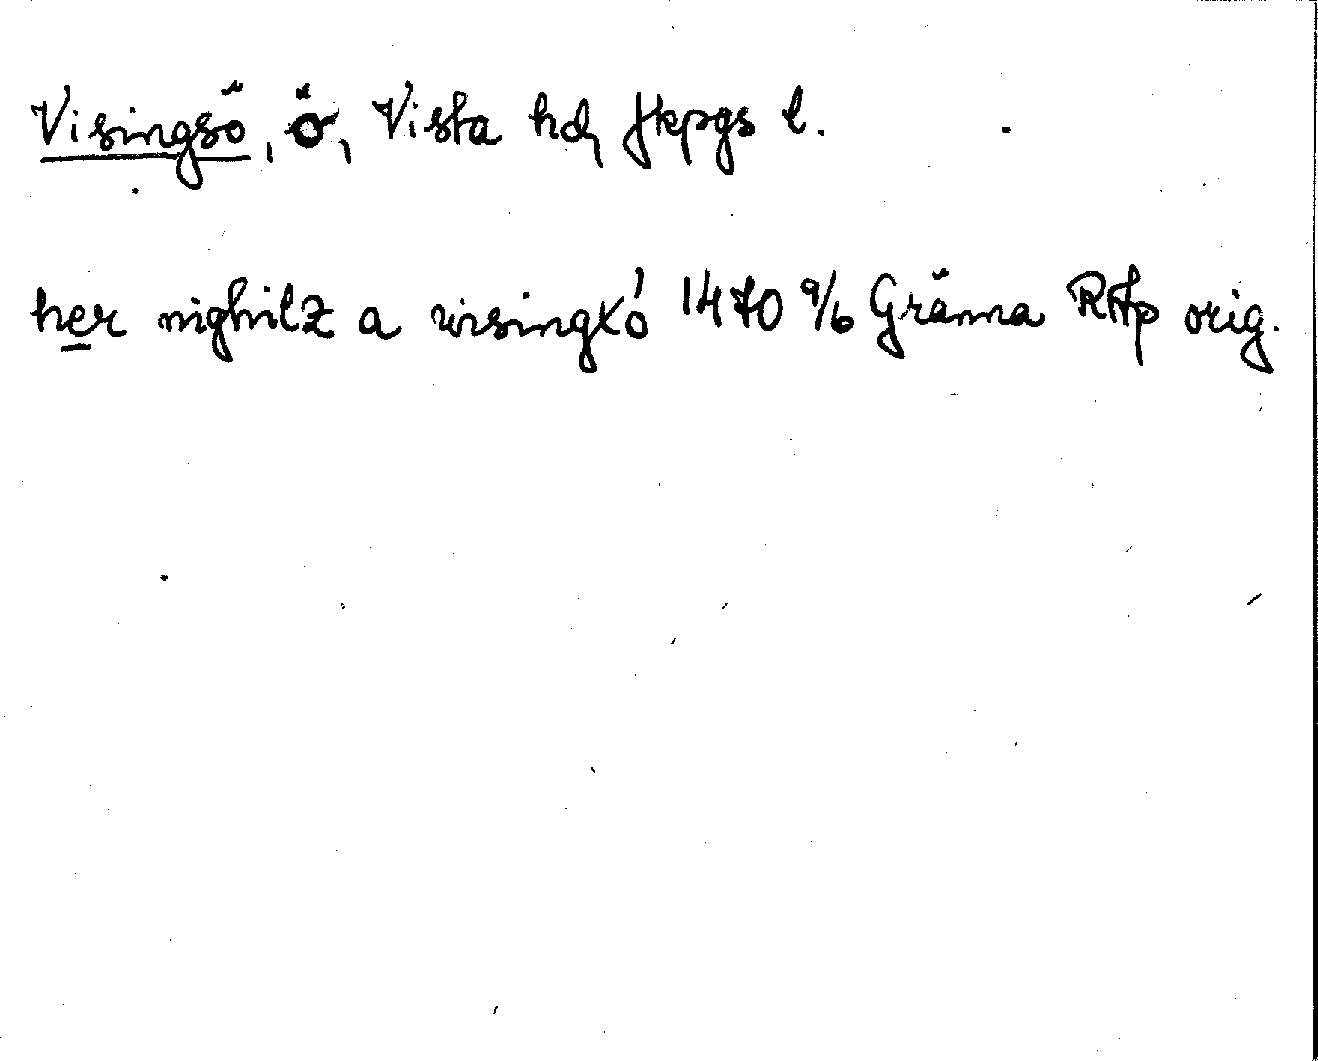 Visingsö, ö, Vista hd, Jkpgs l.
her nighilz a visingxó 1470 9/6 Gränna RAp orig.